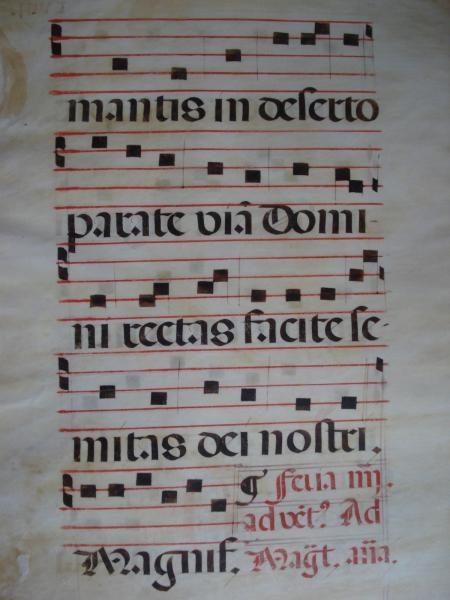 mantis in deserto
parate viā Domi-
ni rectas facite se-
mitas dei nostri.
¶ Feria iiij.
ad vēt? Ad
Magnif. Magt. āña.